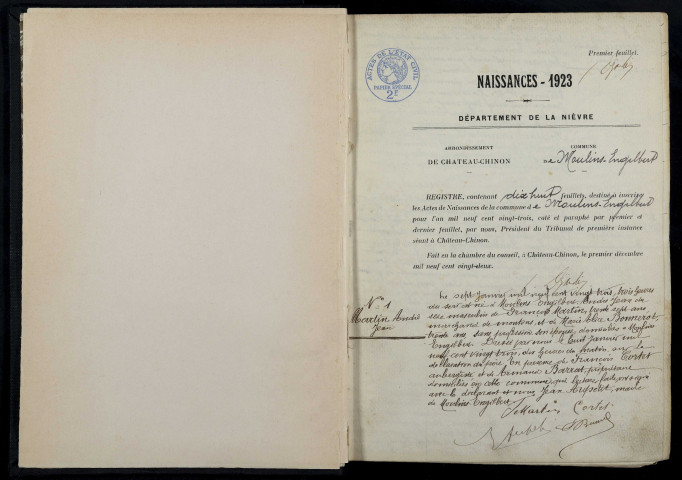 Premier feuillet.
ACTES DE L'ÉTAT CIVIL
PAPIER SPÉCIAL
2F
NAISSANCES - 1923
DÉPARTEMENT DE LA NIÈVRE
ARRONDISSEMENT
DE CHATEAU-CHINON
COMMUNE
de Moulins-Engilbert
REGISTRE, contenant dix huit feuillets, destiné à inscrire
les Actes de Naissances de la commune de Moulins-Engilbert
pour l'an mil neuf cent vingt-trois, coté et paraphé par premier et
dernier feuillet, par nous, Président du Tribunal de première instance
séant à Château-Chinon.
Fait en la chambre du conseil, à Château-Chinon, le premier décembre
mil neuf cent vingt-deux.
N° 1
Martin André
Jean
Le sept Janvier mil neuf cent vingt trois, trois heures
du soir est né à Moulins Engilbert André Jean du
sexe masculin de François Martin, trente sept ans
marchand de moutons, et de Marie Bonnerot,
trente ans sans profession son épouse, domiciliés à Moulins
Engilbert. Dressé par nous le huit Janvier mil
neuf cent vingt trois, dix heures du matin sur la
déclaration du père. En présence de François Cortet
aubergiste et de Barrat, propriétaire
domiciliés en cette commune, qui lecture faite, ont signé
avec le déclarant et nous Jean maire
de Moulins-Engilbert.
Martin Cortet